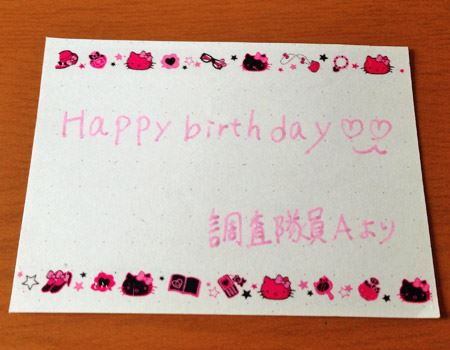 Happy birthday♡♡
調査隊員Aより